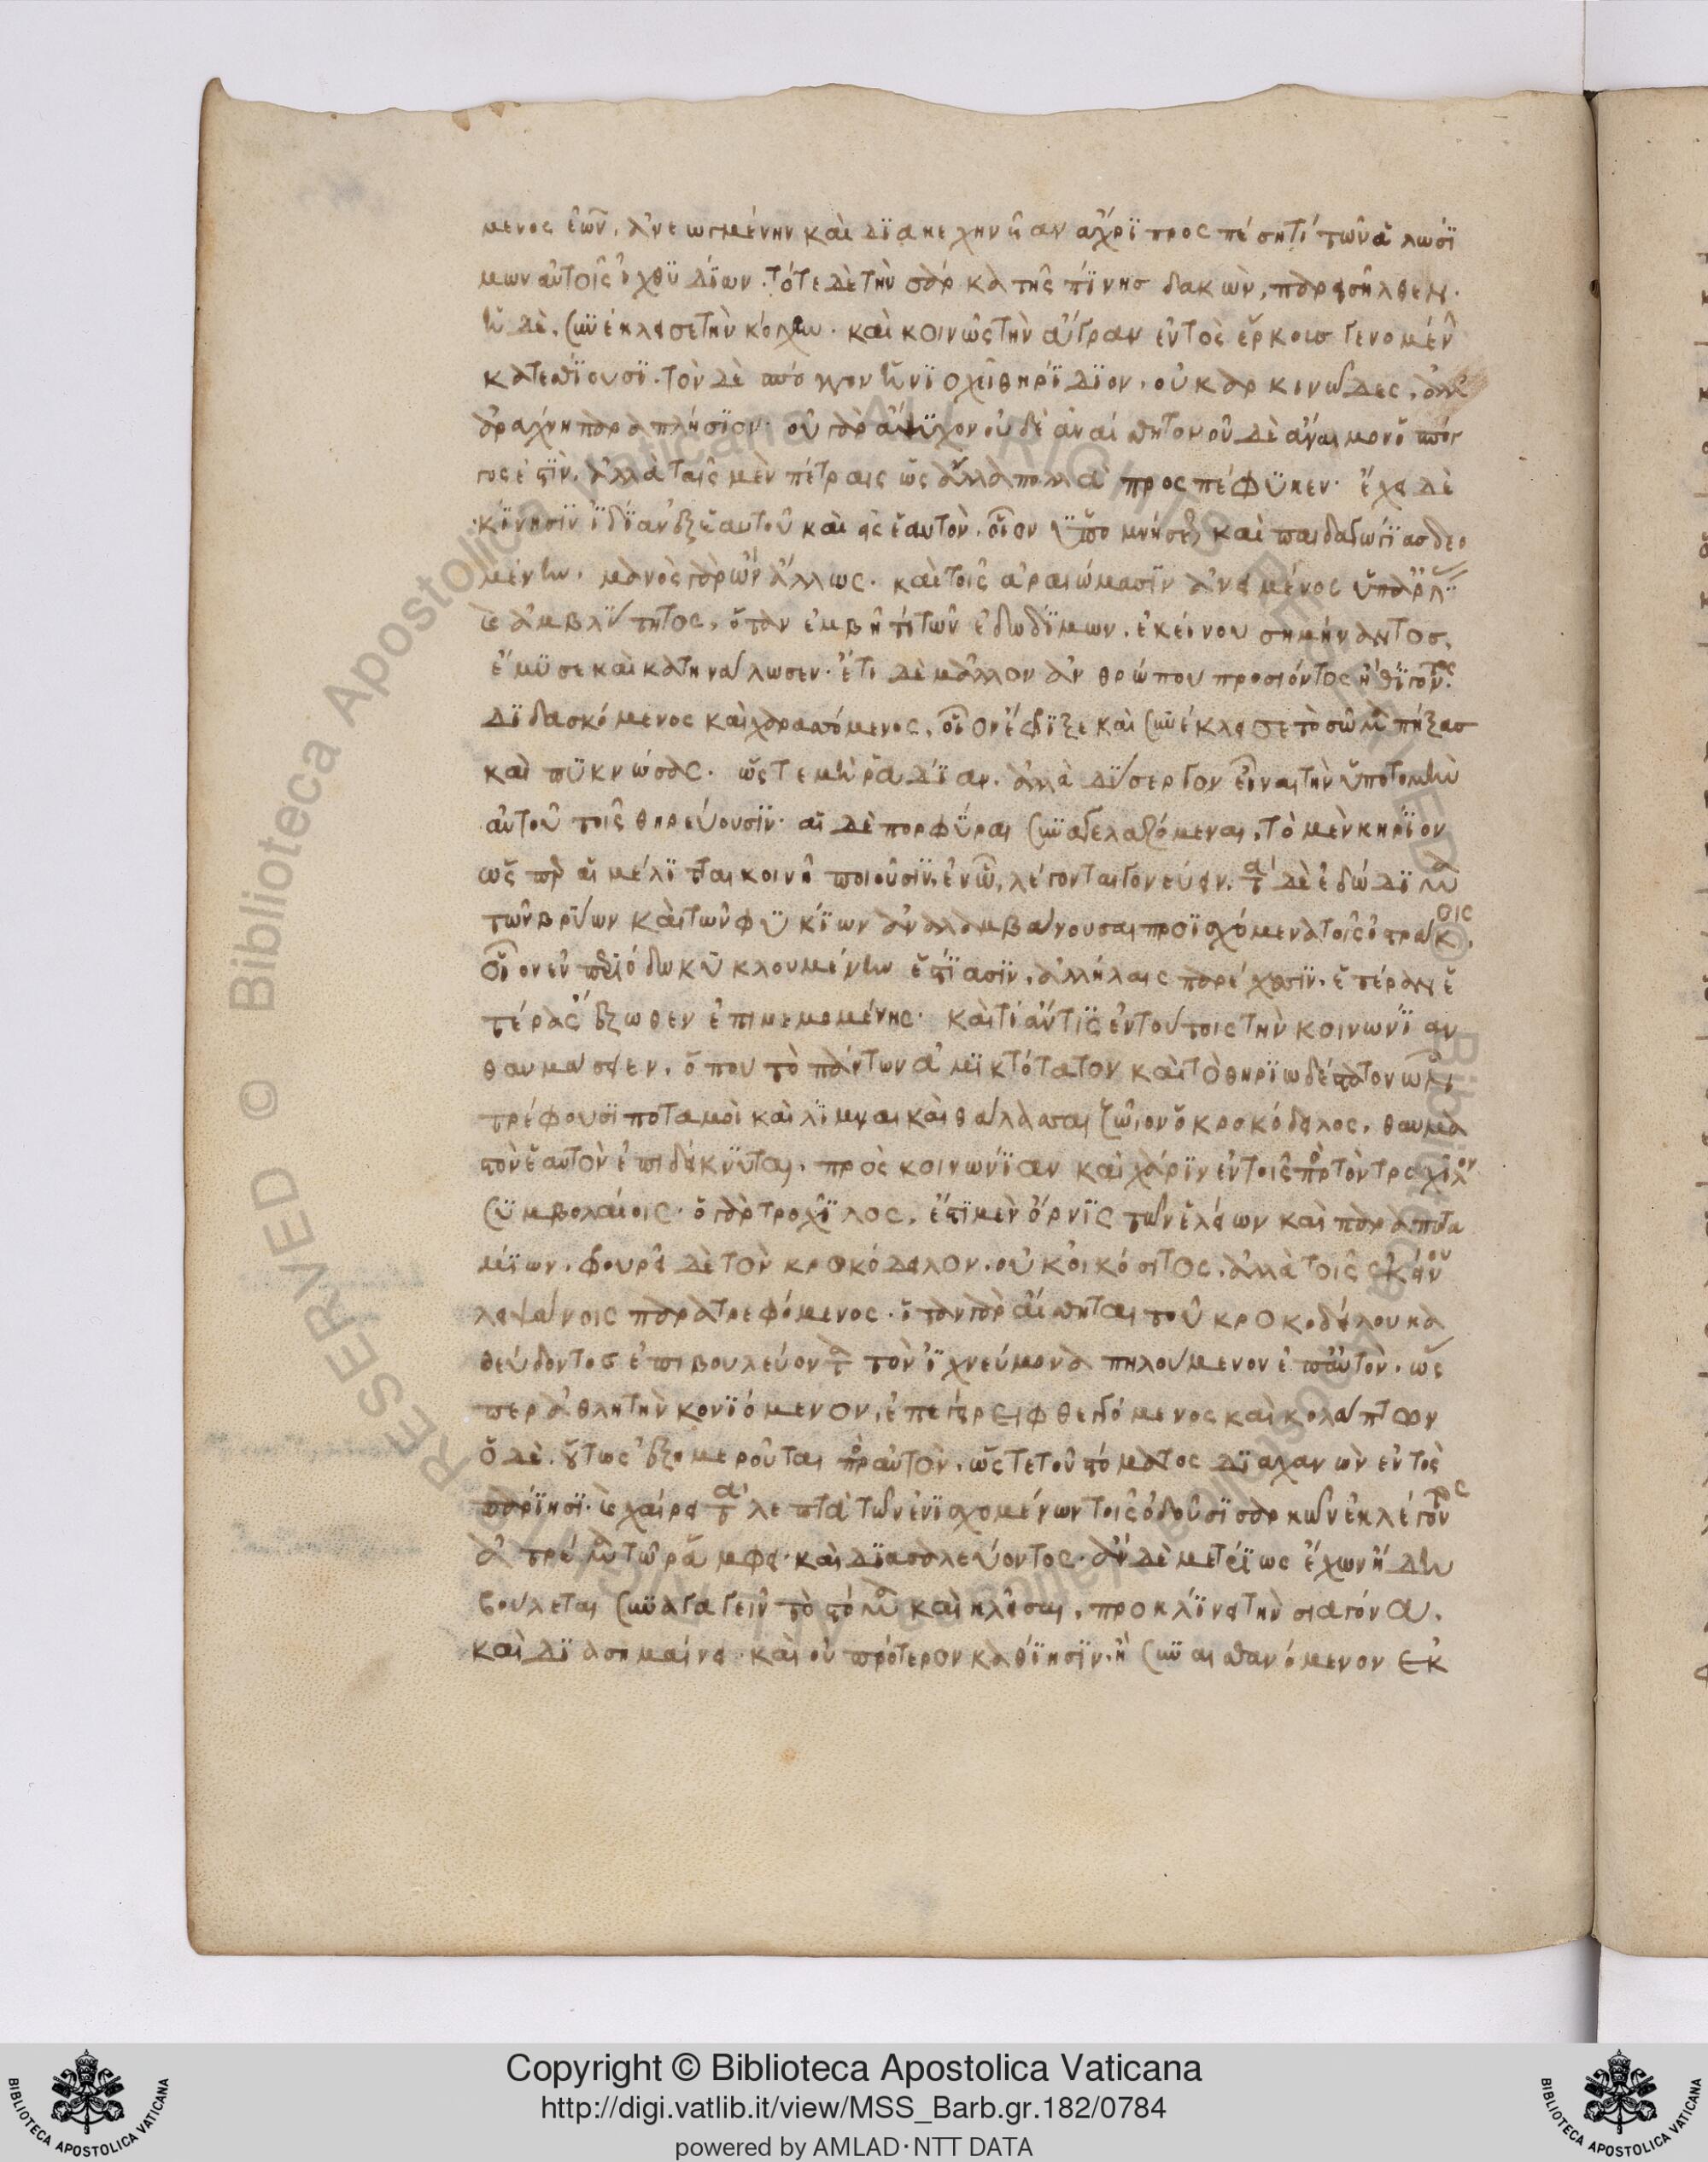 μενος ἐῶν, ἀνεωγμένην καὶ διακεχηνῦιαν ἄχρι προσπέσητί τῶν ἁλωσί
μων αὐτοῖς ἰχθυδίων. τότε δὲ τὴν σάρκα τῆς πίνης δακὼν, παρεισῆλθεν.
ἡ δὲ, συνέκλεισε τὴν κόγχην. καὶ κοινῶς τὴν ἄγραν ἐντὸς ἕρκους γενομένην
κατεσθίουσι. τὸν δὲ σπόγγον ἡνιοχεῖ θηρίδιον, οὐ καρκινῶδες, ἀλλ'
ἀράχνη παραπλήσιον. οὐ γὰρ ἄψυχον οὐδὲ ἀναίσθητον οὐδὲ ἄναιμον ὁ σπόγ
γος ἐστὶν, ἀλλὰ ταῖς μὲν πέτραις ὡς ἄλλα πολλὰ προσπέφυκεν. ἔχει δὲ
κίνησιν ἰδίαν ἐξ ἑαυτοῦ καὶ εἰς ἑαυτὸν, οἷον ὑπομνήσεως καὶ παιδαγωγίας δεο
μένην. μανὸς γὰρ ὢν ἄλλως. καὶ τοῖς ἀραιώμασιν ἀνειμένος ὑπ' ἀργί
ας ἀμβλύτητος, ὅταν ἐμβῆ τὶ τῶν ἐδωδίμων, ἐκείνου σημήναντος,
ἔμυσε καὶ κατηνάλωσεν. ἔτι δὲ μᾶλλον ἀνθρώπου προσιόντος ἢ θίγοντος.
διδασκόμενος καὶ χαρασσόμενος, οἷον ἔφριξε καὶ συνέκλεισε τὸ σῶμα πήξας
καὶ πυκνώσας. ὥστε μὴ ῥαδίαν. ἀλλὰ δύσεργον εἶναι τὴν ὑποτομὴν
αὐτοῦ τοῖς θηρεύουσιν. αἱ δὲ πορφύραι συναγελαζόμεναι, τὸ μὲν κηρίον
ὥσπερ αἱ μέλιτται κοινῆ ποιοῦσιν, ἐν ὧ, λέγονται γονεύειν. τὰ δὲ ἐδώδιμα
τῶν βρύων καὶ τῶν φυκίων ἀναλαμβάνουσαι προισχόμενα τοῖς ὀστράκοις,
οἷον ἐν περιόδω κυκλουμένην ἑστίασιν, ἀλλήλαις παρέχουσιν. ἑτέραν ἑ
τέρας ἔξωθεν ἐπινεμομένης. καὶ τί ἄν τις ἐν τούτοις τὴν κοινωνίαν
θαυμάσειεν, ὅπου τὸ πάντων ἀμικτότατον καὶ τὸ θηριωδέστατον ὧν
τρέφουσι ποταμοὶ καὶ λίμναι καὶ θάλασσαι ζῶιον ὁ κροκόδειλος, θαυμα
στὸν ἑαυτὸν ἐπιδείκνυται, πρὸς κοινωνίαν καὶ χάριν ἐν τοῖς πρὸς τὸν τροχίλον
συμβολαίοις. ὁ γὰρ τροχῖλος, ἐστὶ μὲν ὄρνις τῶν ἑλείων καὶ παραποτα
μίων, φρουρεῖ δὲ τὸν κροκόδειλον, οὐκ οἰκόσιτος, ἀλλὰ τοῖς ἐκείνου
λειψάνοις παρατρεφόμενος. ὅταν γὰρ αἴσθηται τοῦ κροκοδείλου κα
θεύδοντος ἐπιβουλεύοντα τὸν ἰχνεύμονα πηλούμενον ἐπ' αὐτὸν, ὥς
περ ἀθλητὴν κονιόμενον, ἐπεγείρει φθεγγόμενος καὶ κολάπτων
ὁ δὲ, οὕτως ἐξημεροῦται πρὸς αὐτὸν, ὥστε τοῦ στόματος διαχανὼν ἐντὸς
παρίησι. καὶ χαίρει τὰ λεπτὰ τῶν ἐνισχομένων τοῖς ὀδοῦσι σαρκῶν ἐκλέγοντος
ἀτρέμα τῶ ῥάμφει. καὶ διασκαλεύοντος. ἂν δὲ μετρίως ἔχων ἤδη
βούλεται συναγαγεῖν τὸ στόμα καὶ κλεῖσαι, προκλίνει τὴν σιαγόνα,
καὶ διασημαίνει. καὶ οὐ πρότερον καθίησιν, ἢ συναισθανόμενον ἐκ